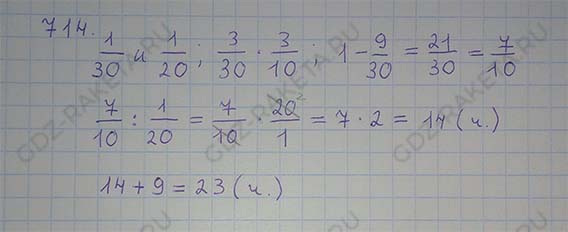 714. 1/30 и 1/20; 3/30 · 3/10; 1 - 9/30 = 21/30 = 7/10
7/10 : 1/20 = 7/10 · 20²/1 = 7 · 2 = 14 (ч.)
14 + 9 = 23 (ч.)
GDZ-RAKETA.RU
GDZ-RAKETA.RU
GDZ-RAKETA.RU
GDZ-RAKETA.RU